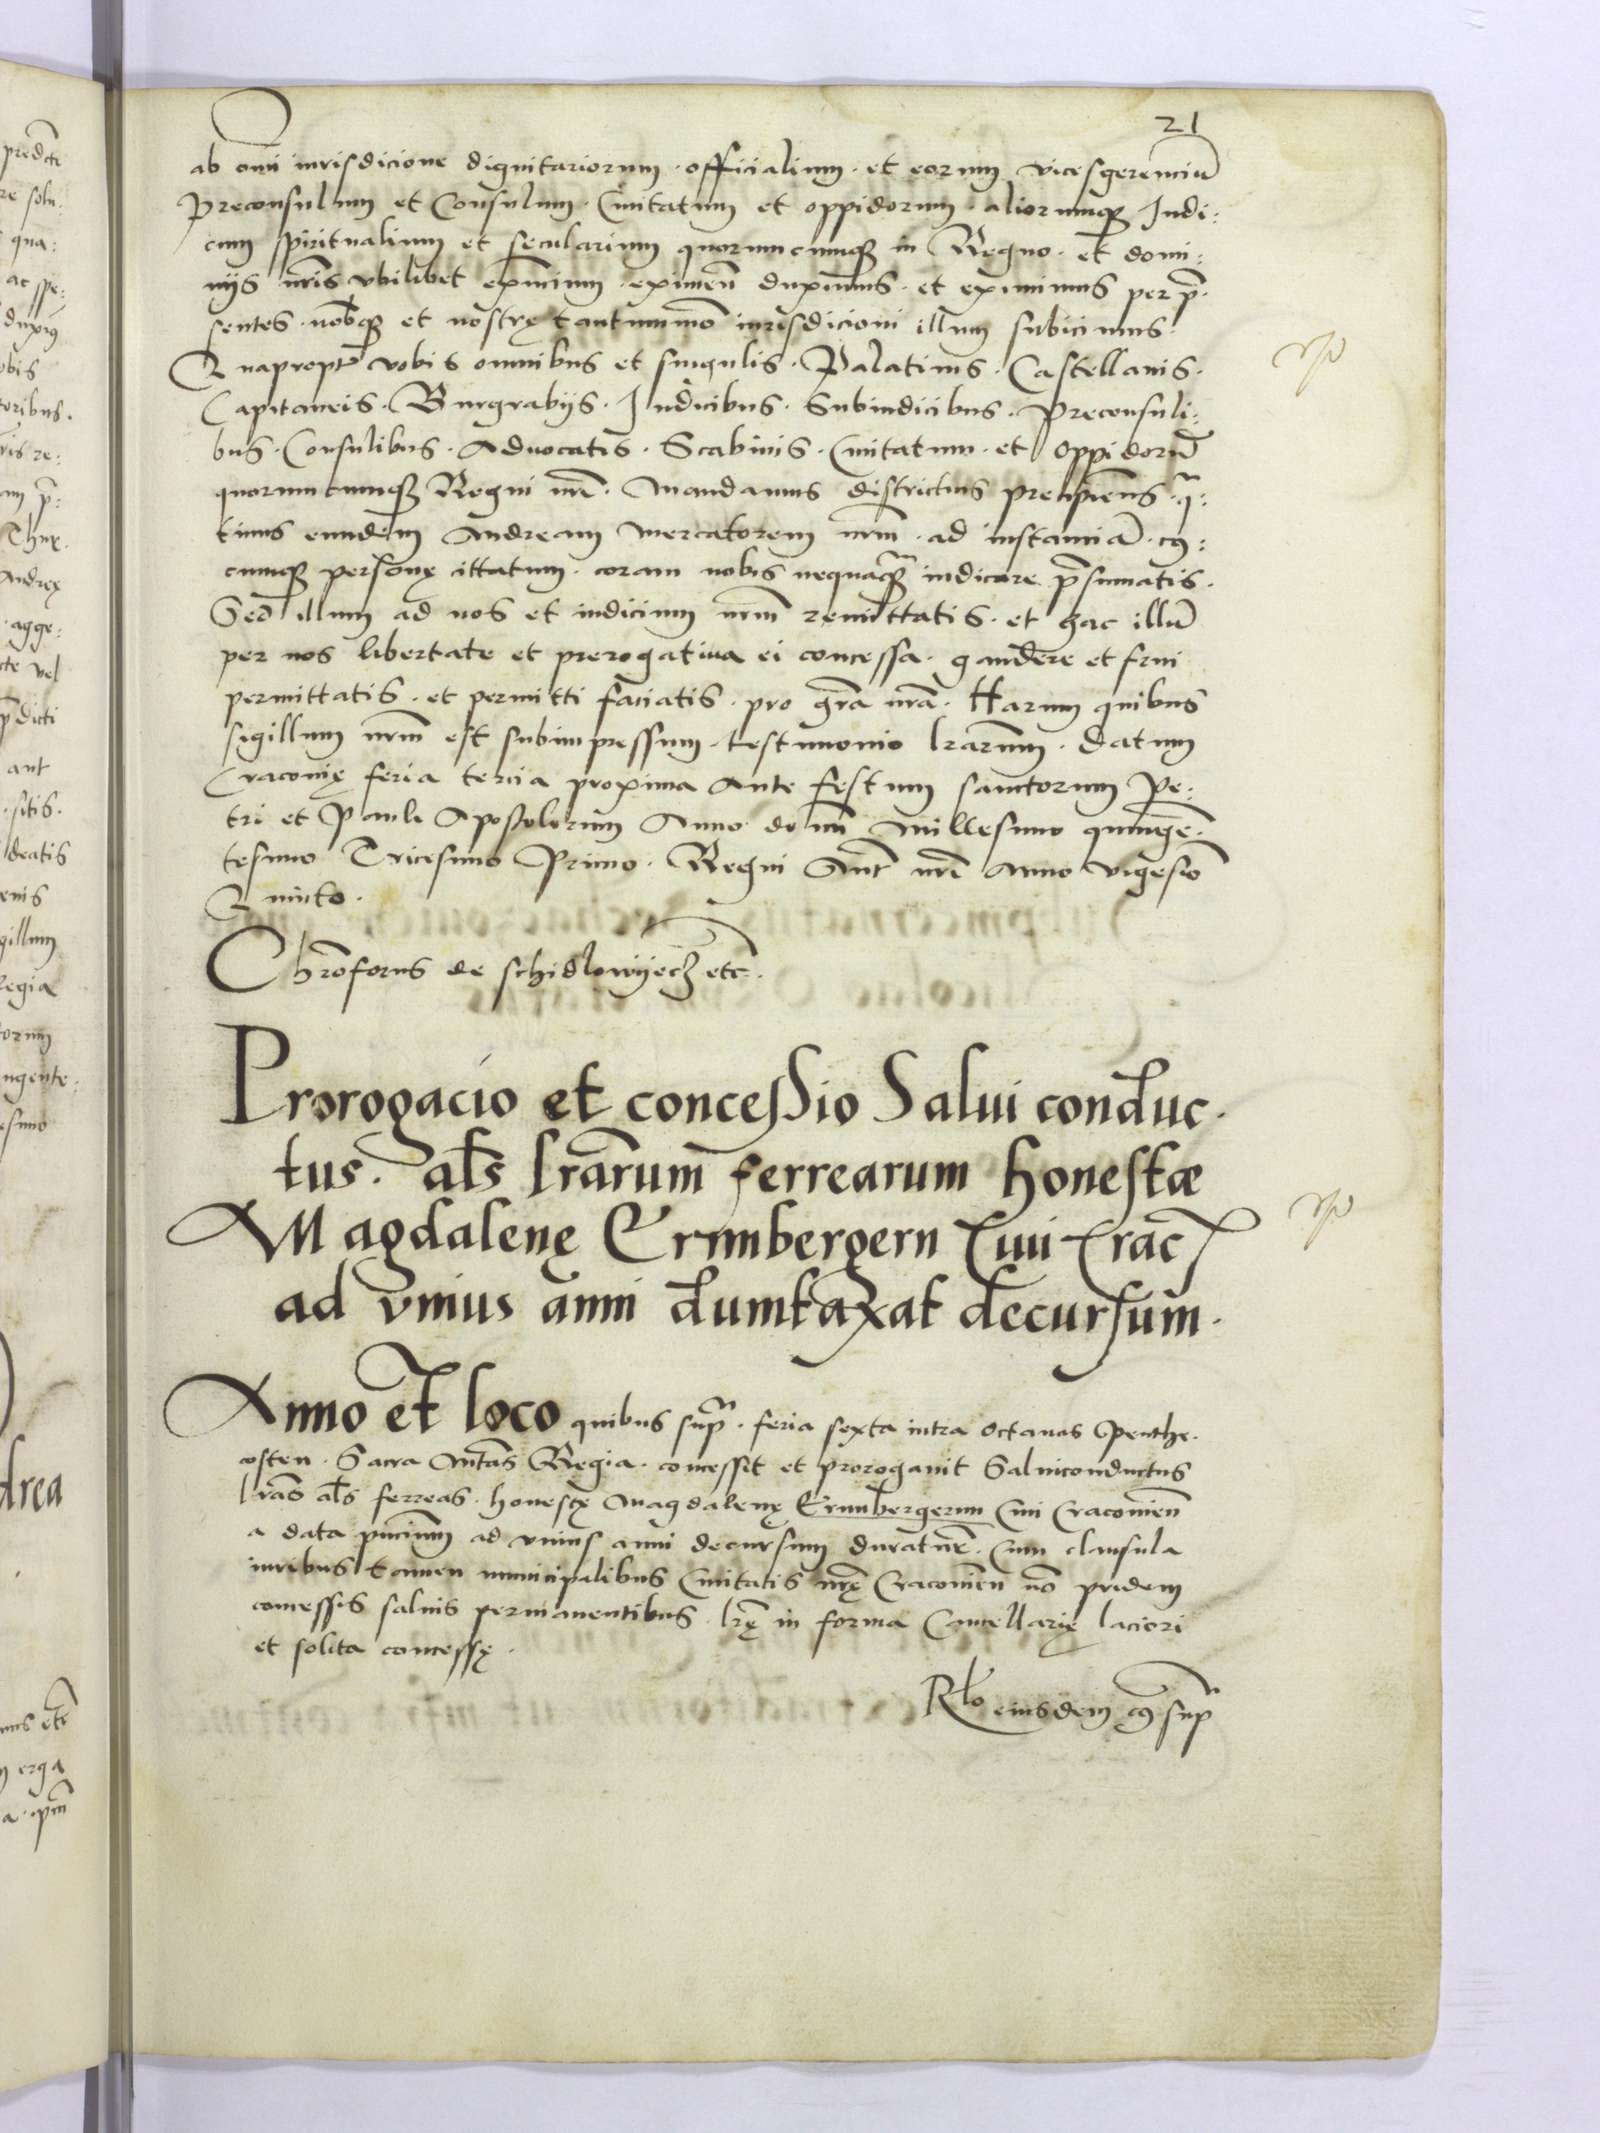 21
ab omi iurisdicione dignitariorum · officialium · et eorum vicesgerenciū
Preconsulum et Consulum · Ciuitatum et oppidorum · aliorumqȝ Iudi:
cum spiritualium et secularium quorumcumqȝ in Regno · et domi:
nijs nr̄is vbilibet eximium · eximen̄ duximus · et eximimus per p̄:
sentes · nobqȝ et nostrę tantummō iurisdicioni illum subicimus ·
Quapropt vobis omnibus et singulis · Palatinis · Castellanis ·
Capitaneis · Burgrabijs · Iudicibus · Subiudicibus · Preconsuli:
bus · Consulibus · Aduocatis · Scabinis · Ciuitatum · et Oppidorū
quorumcumqȝ Regni nr̄i · Mandamus districtius precipiens · q:
tinus eundem Andream mercatorem nrm̄ · ad instanciā · cꝰ:
cumqȝ personę cittatum · coram vobis nequaqȝ iudicare p̄sumatis ·
Sed illum ad nos et iudicium nrm̄ remittatis · et hac illū
per nos libertate et prerogatiua ei concessa · gaudere et frui
permittatis · et permitti faciatis · pro gr̄a nr̄a · Harum quibus
sigillum nrm̄ est subimpressum · testimonio lr̄arum · Datum
Cracouię feria tercia proxima Ante festum sanctorum Pe:
tri et Pauli Apostolorum Anno domī Millesimo quingē:
tesimo Tricesimo Primo · Regni Aut̄ nr̄i Anno vigesīo
Quinto ·
Chrōforus de schidlowyecȝ etc ·
Prorogacio et concessio Salui conduc·
tus · al̄s lr̄arum ferrearum honestæ
Magdalenę Erimbergern Ciui Crac̄
ad vnius anni dumtaxat decursum ·
Anno et loco quibus sup̄ · feria sexta intra octauas Penthe·
costen · Sacra Mtas Regia · concessit et prorogauit Saluiconductus
lr̄as al̄s ferreas · honestę Magdalenę Erimbergerim Ciui Cracouien̄
a data pn̄cium ad vnius anni decursum duratur̄ · Cum clausula
iuribus tamen municipalibus Ciuitatis nr̄ę Cracouien̄ nō pridem
concessis saluis permanentibus · lr̄ę in forma Cancellarię laciori
et solita concessę ·
Rlo eiusdem cꝰ sup̄